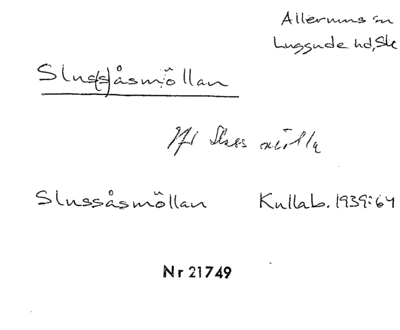 Allerums sn
Luggude hd, Sk
Slus(s)åsmöllan
Jfr Sluss mölla
Slussåsmöllan Kullab. 1939:64
Nr 21749